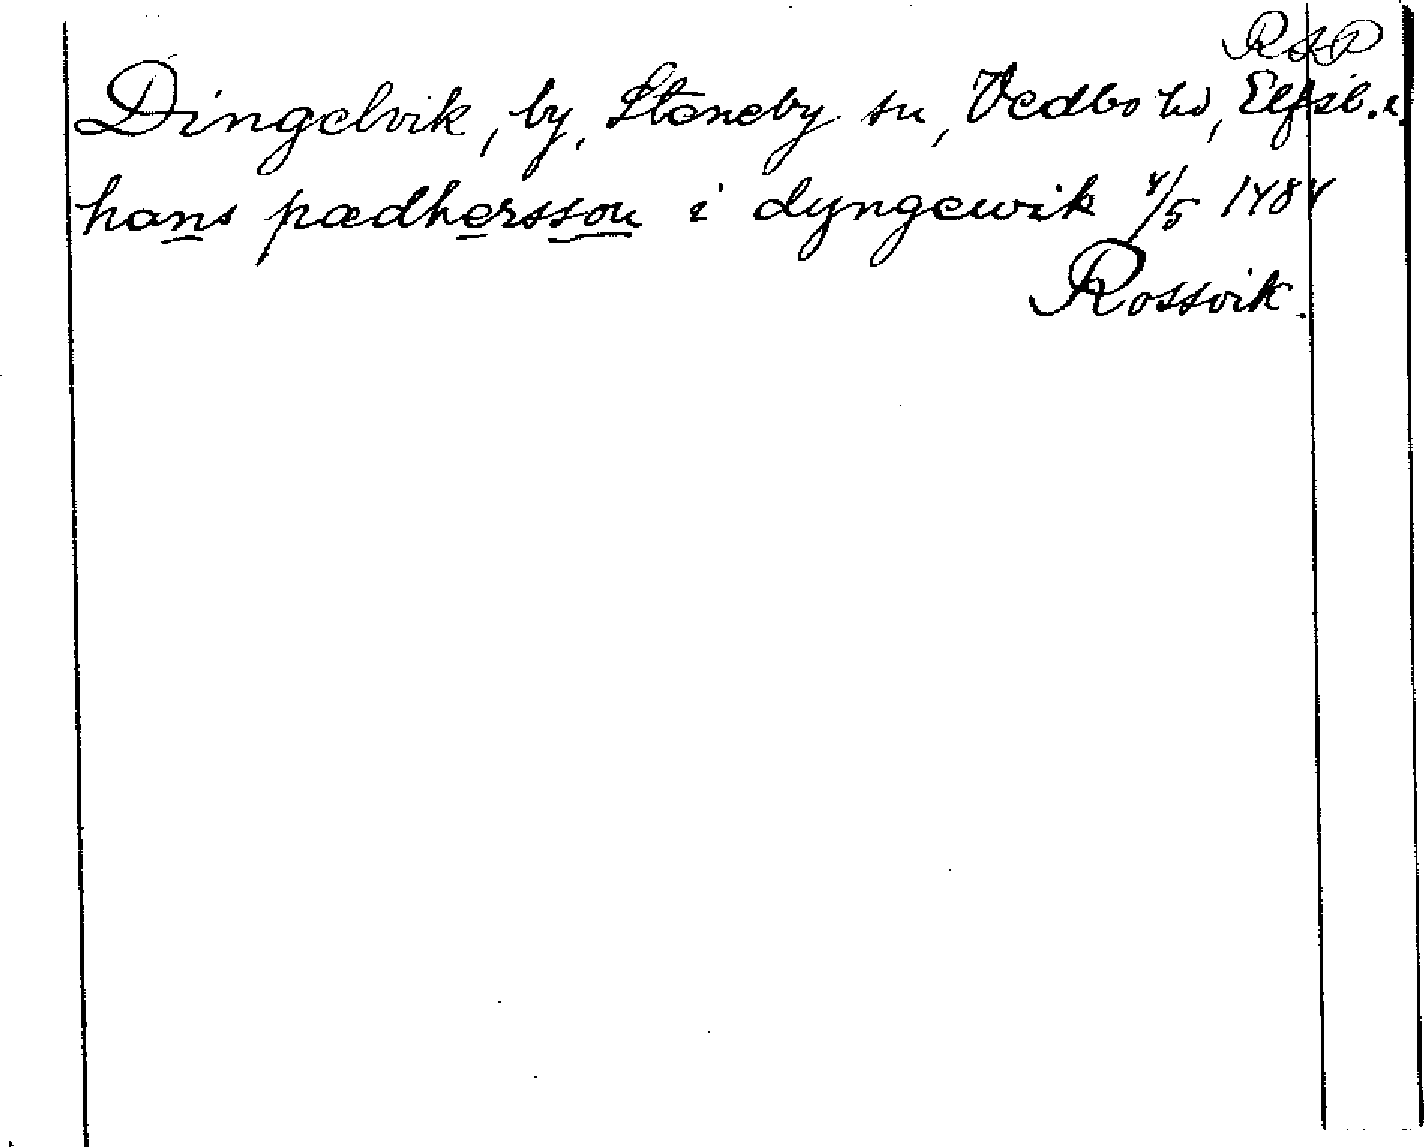 RAP
Dingelvik, by, Steneby sn, Vedbo hd, Elfsb. l.
hans pædhersson i dyngewik 4/5 1484
Rossvik.